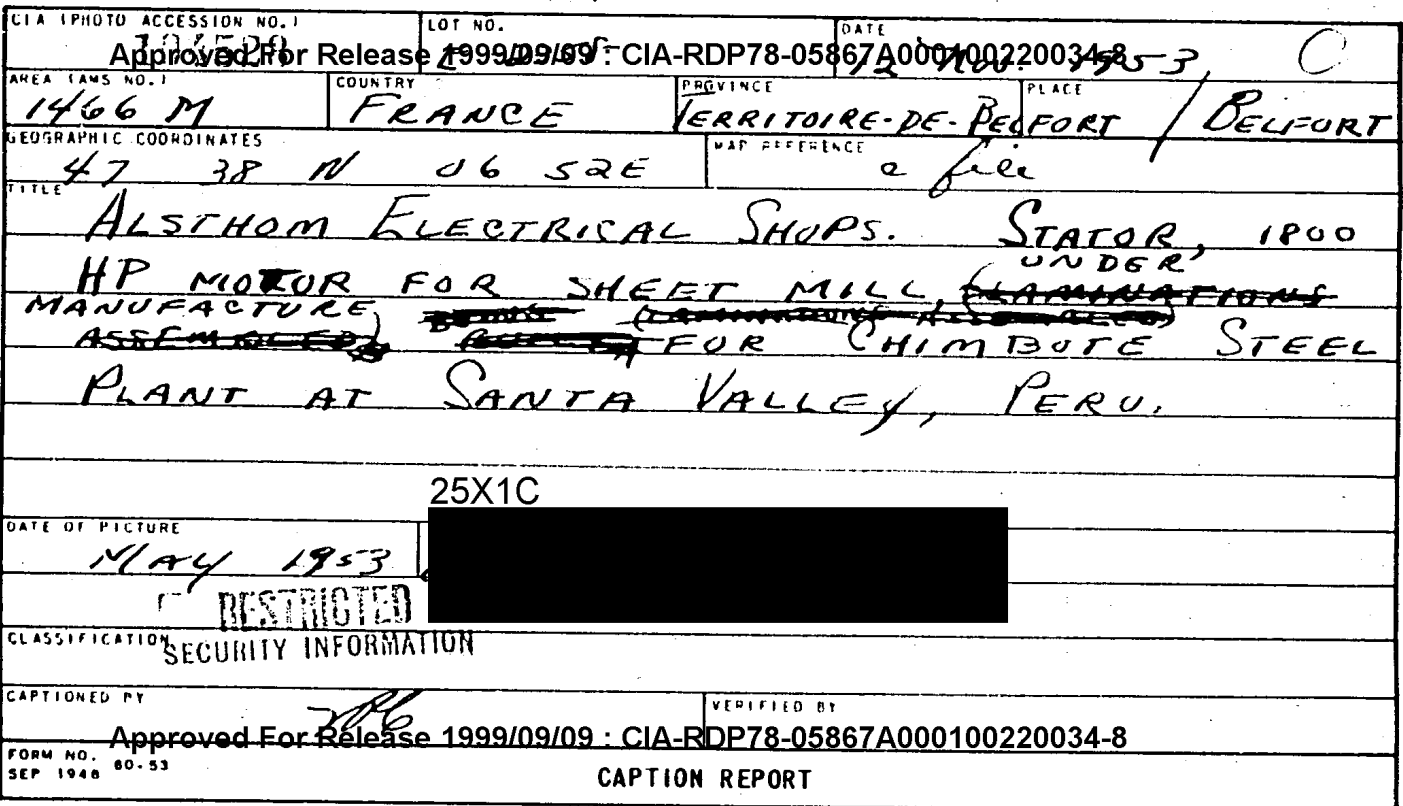 CIA (PHOTO ACCESSION NO.) LOT NO. DATE
Approved For Release 1999/09/09 : CIA-RDP78-05867A000100220034-8
12 Nov. 1953
AREA (AMS NO.) COUNTRY PROVINCE PLACE
1466 M FRANCE TERRITOIRE-DE-BELFORT / BELFORT
GEOGRAPHIC COORDINATES MAP REFERENCE
47 38 N 06 52E
TITLE
ALSTHOM ELECTRICAL SHOPS. STATOR, 1800
UNDER
HP MOTOR FOR SHEET MILL, (LAMINATIONS
MANUFACTURE
ASSEMBLED) FOR CHIMBOTE STEEL
PLANT AT SANTA VALLEY, PERU.
25X1C
DATE OF PICTURE
MAY 1953
RESTRICTED
CLASSIFICATION SECURITY INFORMATION
CAPTIONED BY VERIFIED BY
Approved For Release 1999/09/09 : CIA-RDP78-05867A000100220034-8
FORM NO. 60-53
SEP 1948
CAPTION REPORT